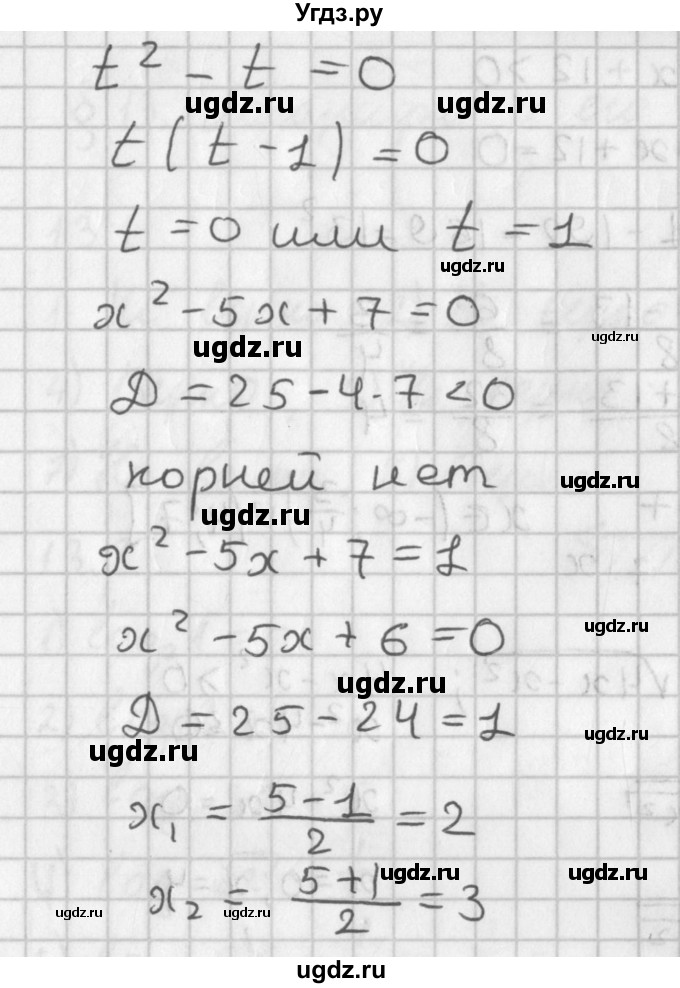 Угдз.ру
t² - t = 0
ugdz.ru ugdz.ru
t(t - 1) = 0
t = 0 или t = 1
ugdz.ru
x² - 5x + 7 = 0
ugdz.ru
ugdz.ru
Д = 25 - 4 · 7 < 0
корней нет
ugdz.ru
ugdz.ru
x² - 5x + 7 = 1
x² - 5x + 6 = 0
ugdz.ru
ugdz.ru
Д = 25 - 24 = 1
ugdz.ru
ugdz.ru
x₁ = (5 - 1)/2 = 2
ugdz.ru ugdz.ru
x₂ = (5 + 1)/2 = 3
ugdz.ru ugdz.ru
ugdz.ru